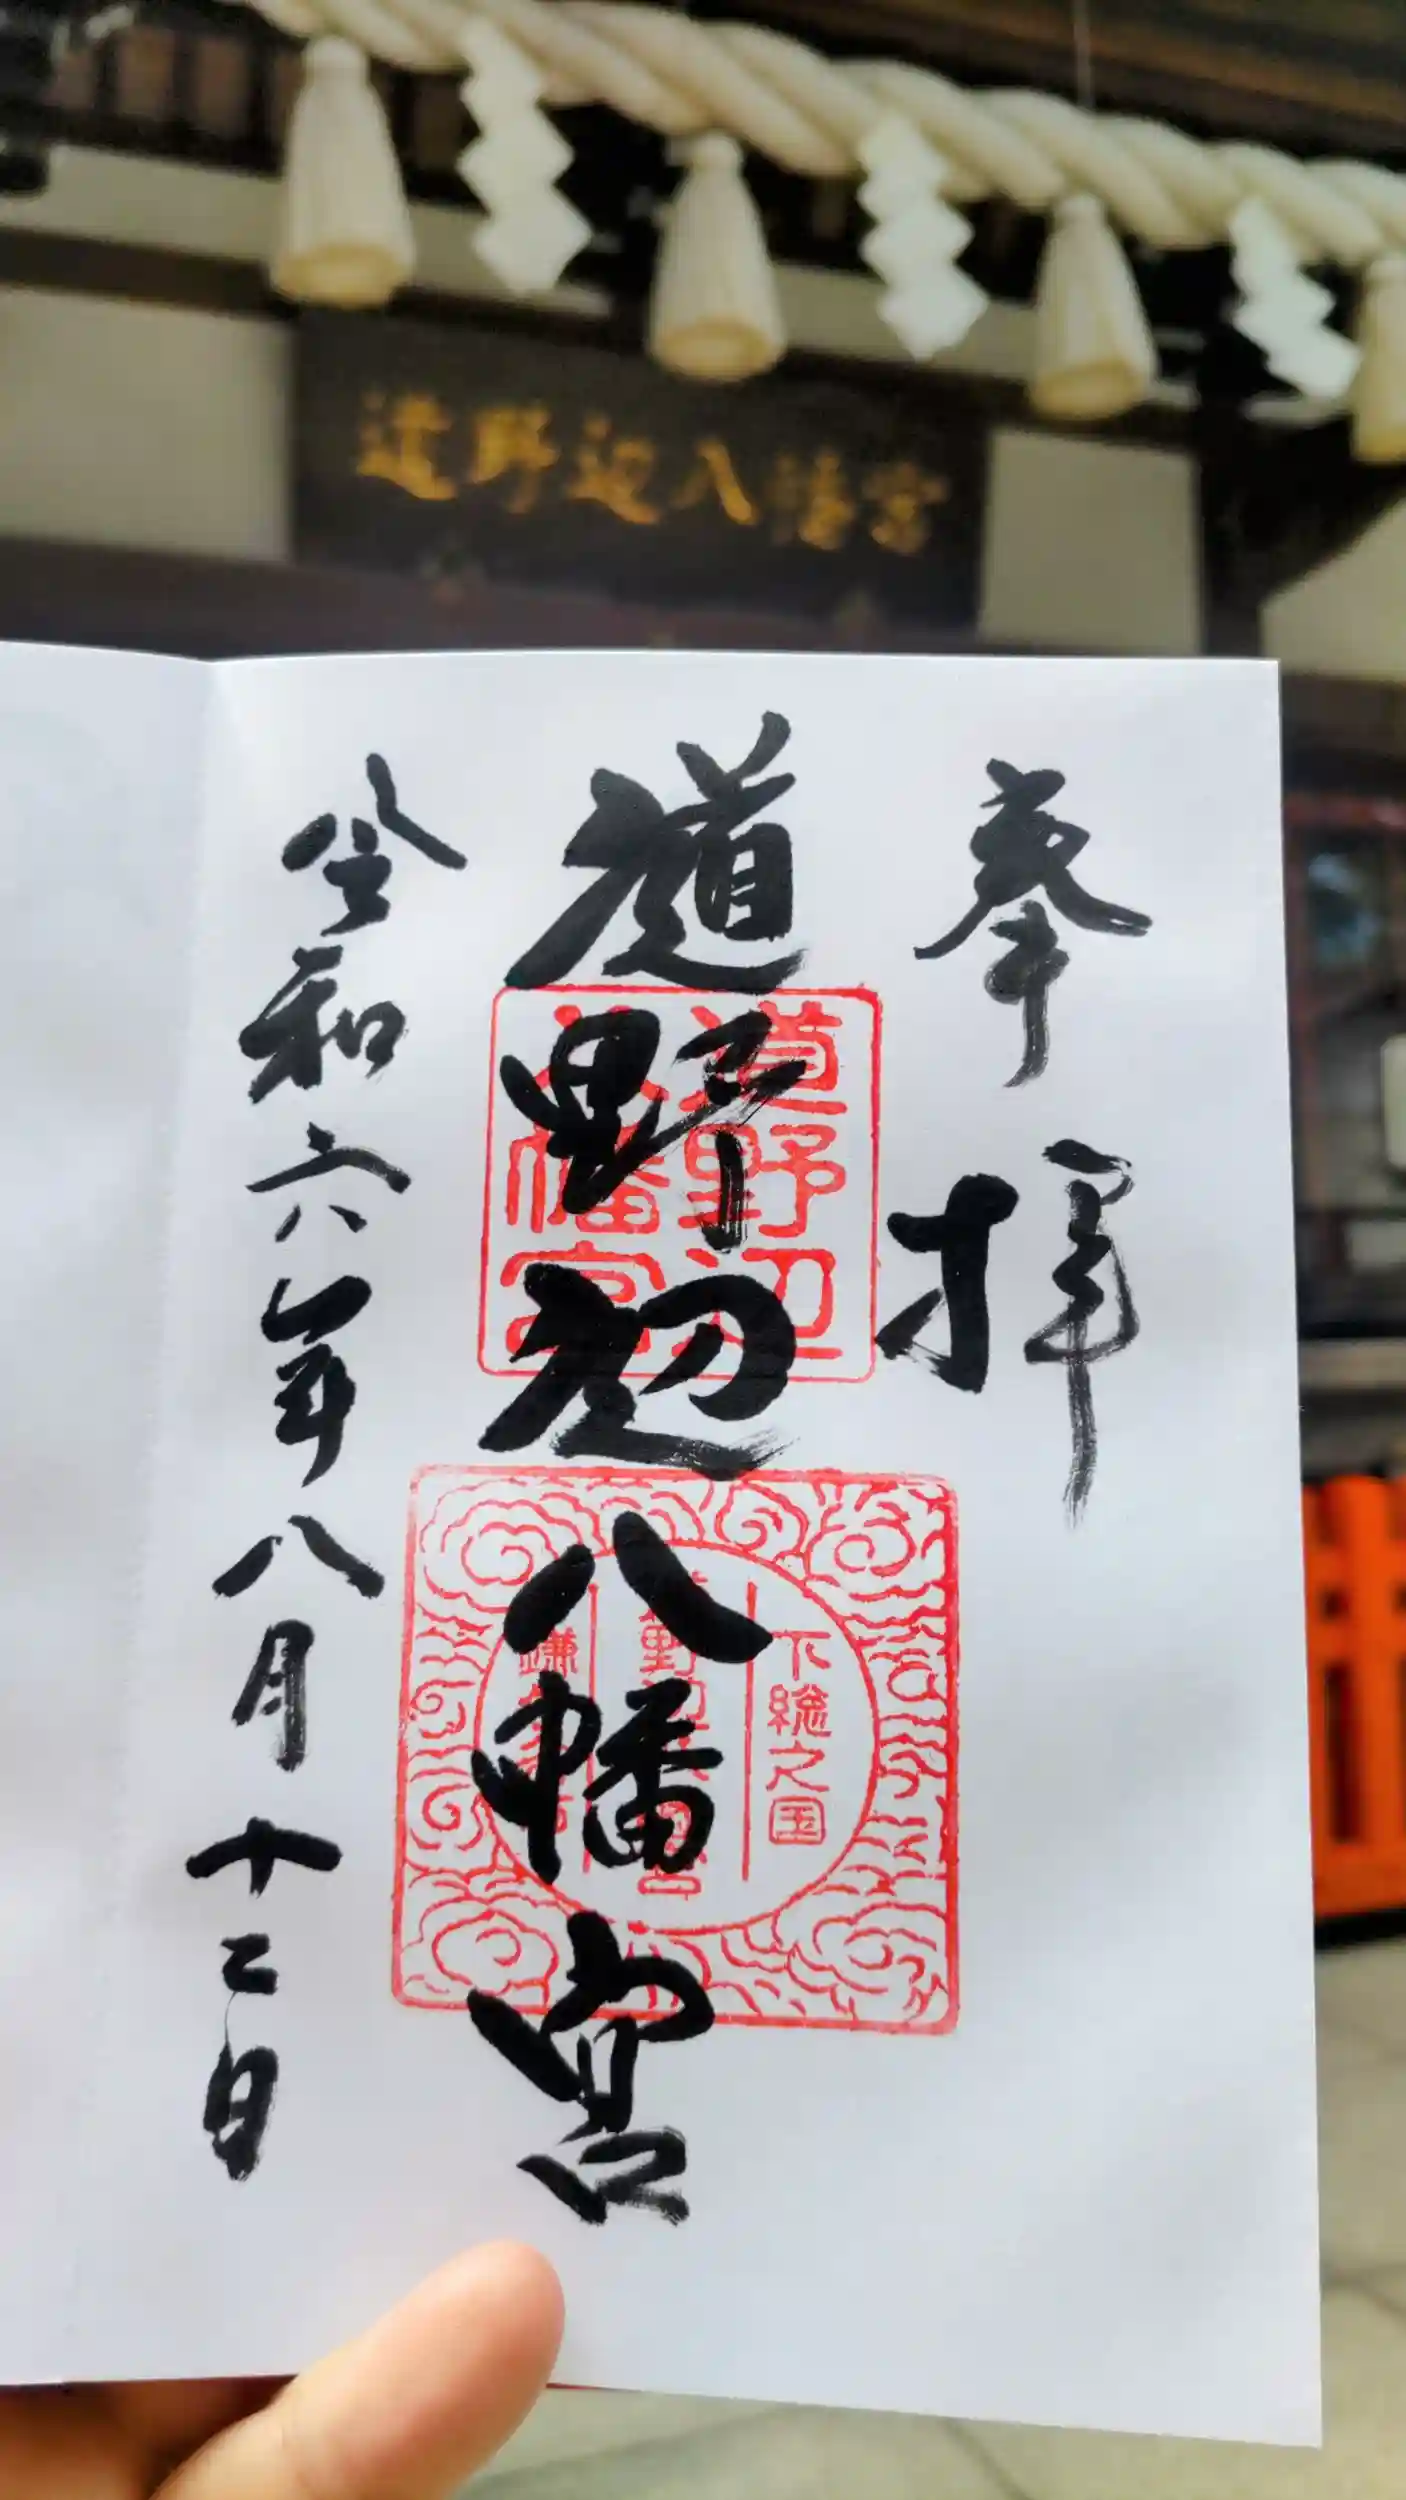 道野辺八幡宮
奉拝
道野辺八幡宮
令和六年八月十二日
道野辺
八幡宮
下総之国